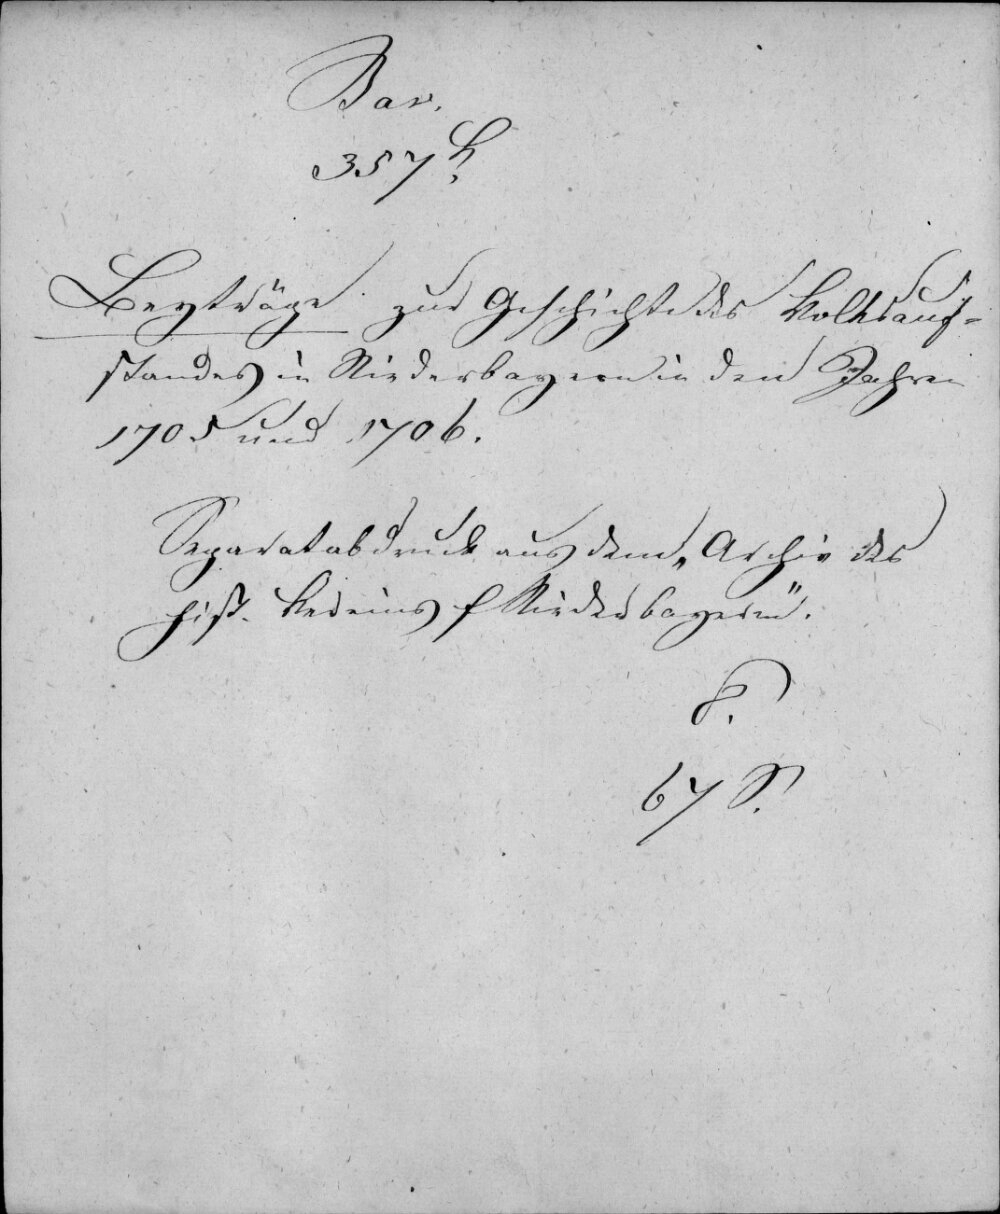 Bav.
357 h.
Beyträge zur Geschichte des Volksauf-
standes in Niederbayern in den Jahren
1705 und 1706.
Separatabdruck aus dem „Archiv des
hist. Vereins f Niederbayern".
8.
67 S.